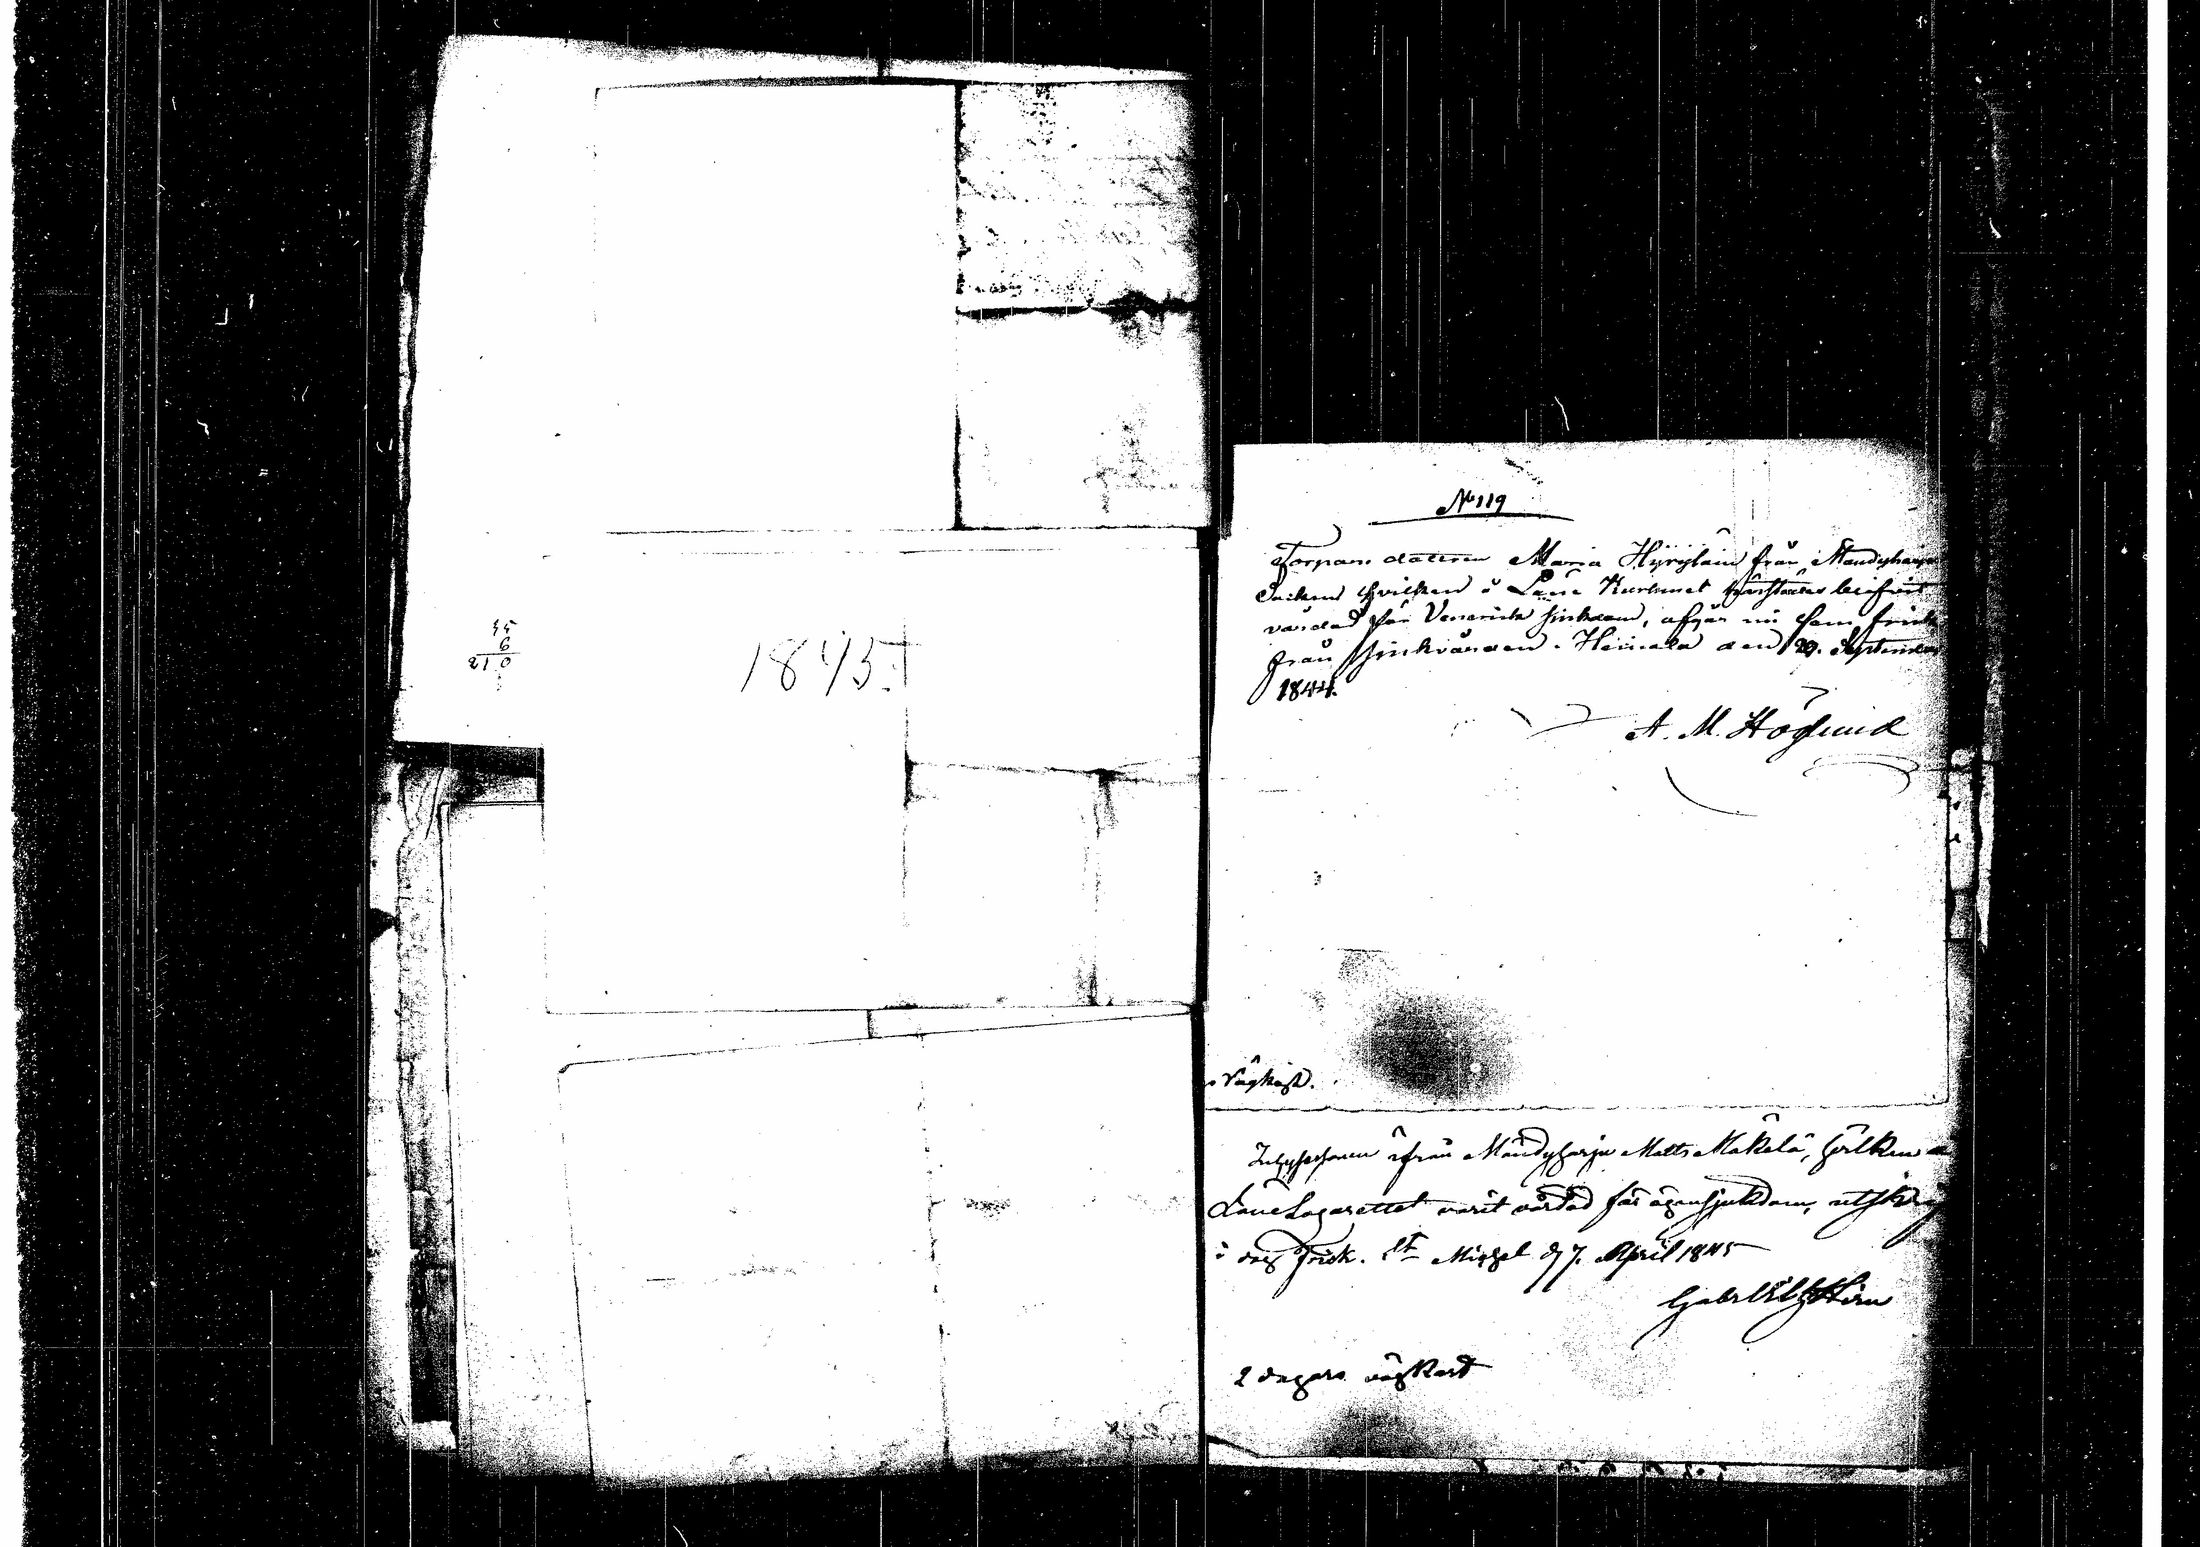 35
6
210
1845.
No 119
Torpare dottren Maria Hyrylain från Mandyharju
Socken hvilken å Läne Kurhuset härstädes blifvit
vårdad för Venerisk sjukdom, afgår nu som frisk
från sjukvården. Heinola den 29. September
1844.
A. M. Höglund
Vägkost.
Inhyseshonen ifrån Mändyharju Matts Mäkelä, hvilken
Läne Lazarettet varit vårdad för ögonsjukdom, utskrifs
i dag frisk. St Michel d 7. April 1845
Gabriel Hirn
2 dagars vägkost